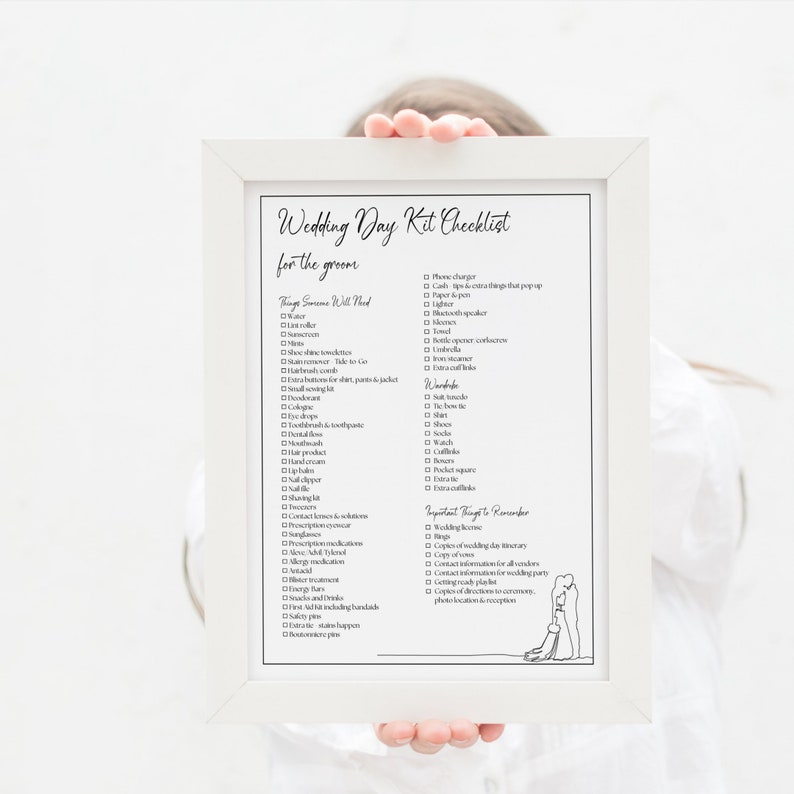 Wedding Day Kit Checklist
for the groom
Things Someone Will Need
Water
Lint roller
Sunscreen
Mints
Shoe shine towelettes
Stain remover - Tide-to-Go
Hairbrush/comb
Extra buttons for shirt, pants & jacket
Small sewing kit
Deodorant
Cologne
Eye drops
Toothbrush & toothpaste
Dental floss
Mouthwash
Hair product
Hand cream
Lip balm
Nail clipper
Nail file
Shaving kit
Tweezers
Contact lenses & solutions
Prescription eyewear
Sunglasses
Prescription medications
Aleve/Advil/Tylenol
Allergy medication
Antacid
Blister treatment
Energy Bars
Snacks and Drinks
First Aid Kit including bandaids
Safety pins
Extra tie - stains happen
Boutonniere pins
Phone charger
Cash - tips & extra things that pop up
Paper & pen
Lighter
Bluetooth speaker
Kleenex
Towel
Bottle opener/corkscrew
Umbrella
Iron/steamer
Extra cuff links
Wardrobe
Suit/tuxedo
Tie/bow tie
Shirt
Shoes
Socks
Watch
Cufflinks
Boxers
Pocket square
Extra tie
Extra cufflinks
Important Things to Remember
Wedding license
Rings
Copies of wedding day itinerary
Copy of vows
Contact information for all vendors
Contact information for wedding party
Getting ready playlist
Copies of directions to ceremony,
photo location & reception